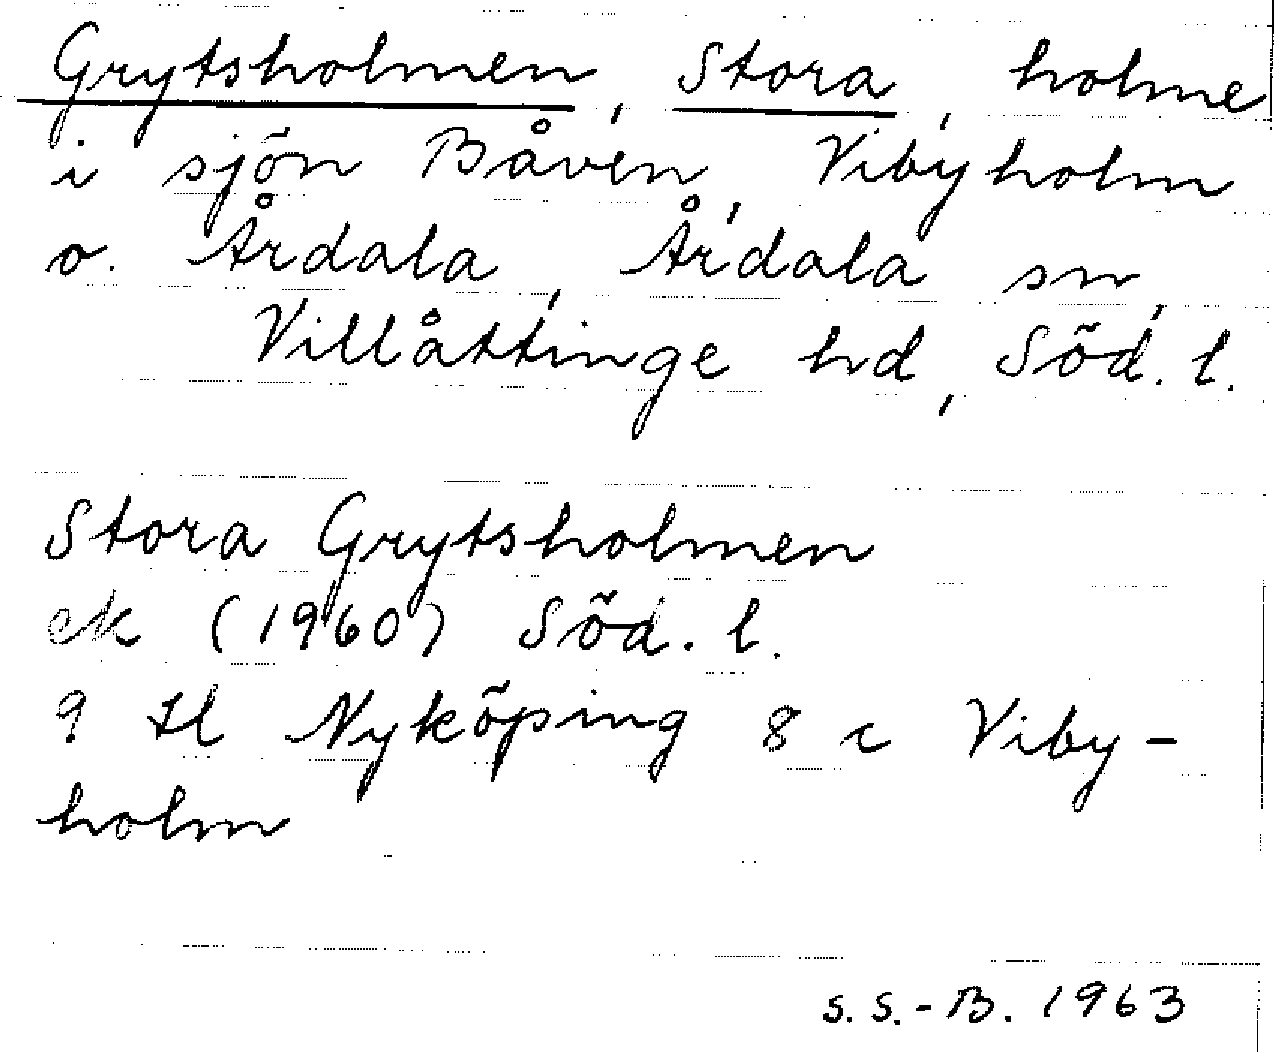 Grytsholmen, Stora, holme
i sjön Båven, Vibyholm
o. Årdala, Årdala sn,
Villåttinge hd, Söd. l.
Stora Grytsholmen
ek (1960) Söd. l.
9 tl Nyköping 8 c Viby-
holm
S. S.-B. 1963